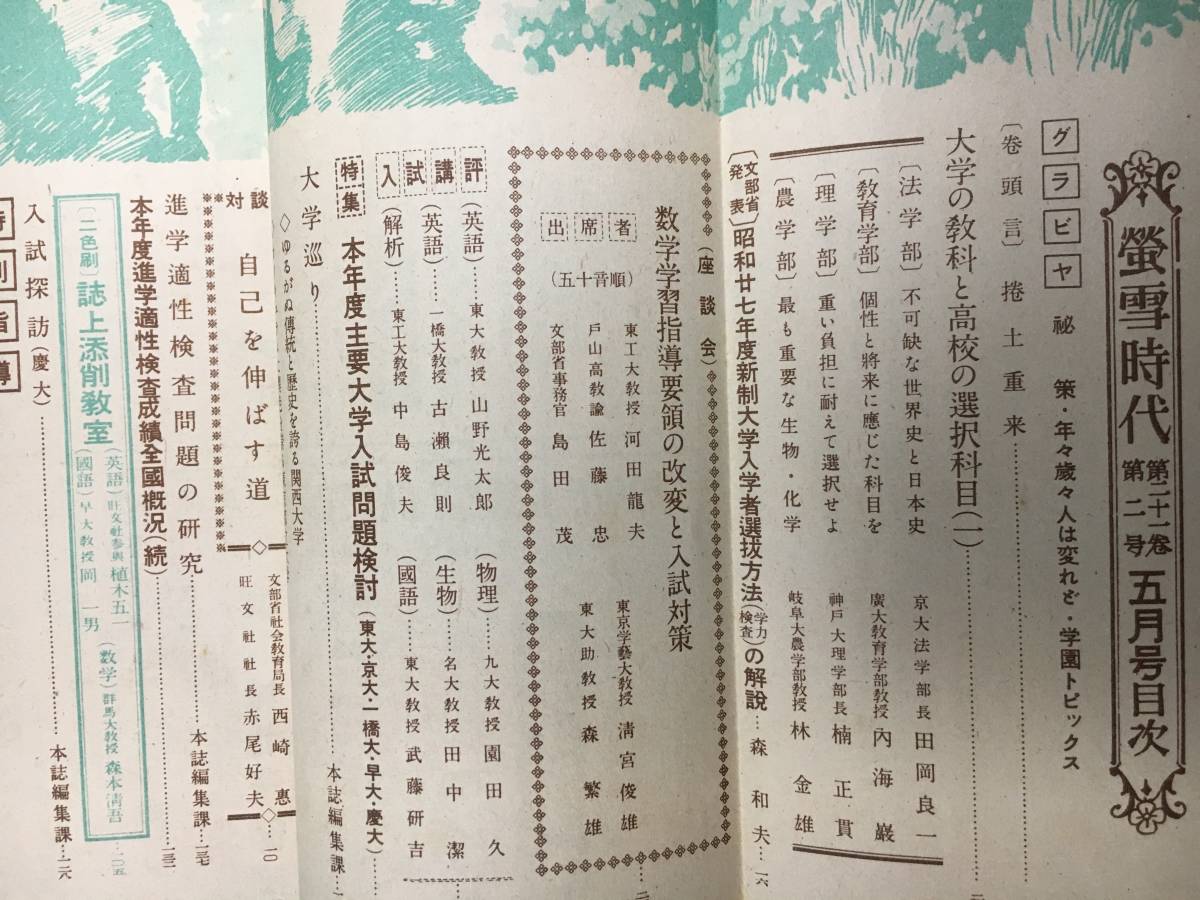 螢雪時代 第二十一巻 第二号 五月号目次
グラビヤ 祕策・年々歳々人は変れど・学園トピックス
〔巻頭言〕捲土重来
大学の教科と高校の選択科目(一)
〔法学部〕不可缺な世界史と日本史 京大法学部長 田岡良一
〔教育学部〕個性と將来に應じた科目を 廣大教育学部教授 内海巖
〔理学部〕重い負担に耐えて選択せよ 神戸大理学部長 楠正貫
〔農学部〕最も重要な生物・化学 岐阜大農学部教授 林金雄
〔文部省発表〕昭和廿七年度新制大学入学者選抜方法(学力検査)の解説 森和夫 一六
(座談会)
数学学習指導要領の改変と入試対策
出席者
(五十音順)
東工大教授 河田龍夫
戸山高教諭 佐藤忠
文部省事務官 島田茂
東京学藝大教授 淸宮俊雄
東大助教授 森繁雄
入試講評
(英語) 東大教授 山野光太郎
(英語) 一橋大教授 古瀬良則
(解析) 東工大教授 中島俊夫
(物理) 九大教授 園田久
(生物) 名大教授 田中潔
(國語) 東大教授 武藤研吉
特集 本年度主要大学入試問題検討(東大・京大・一橋大・早大・慶大)
大学巡り 本誌編集課
◇ゆるがぬ傳統と歴史を誇る関西大学
対談 自己を伸ばす道
文部省社会教育局長 西崎惠
旺文社社長 赤尾好夫 一〇
進学適性検査問題の研究 本誌編集課 一三七
本年度進学適性検査成績全國概況(続) 一三三
(二色刷)誌上添削教室
(英語)旺文社参與 植木五一
(國語)早大教授 岡一男
(数学)群馬大教授 森本淸吾 一〇五
入試探訪(慶大) 本誌編集課 一二六